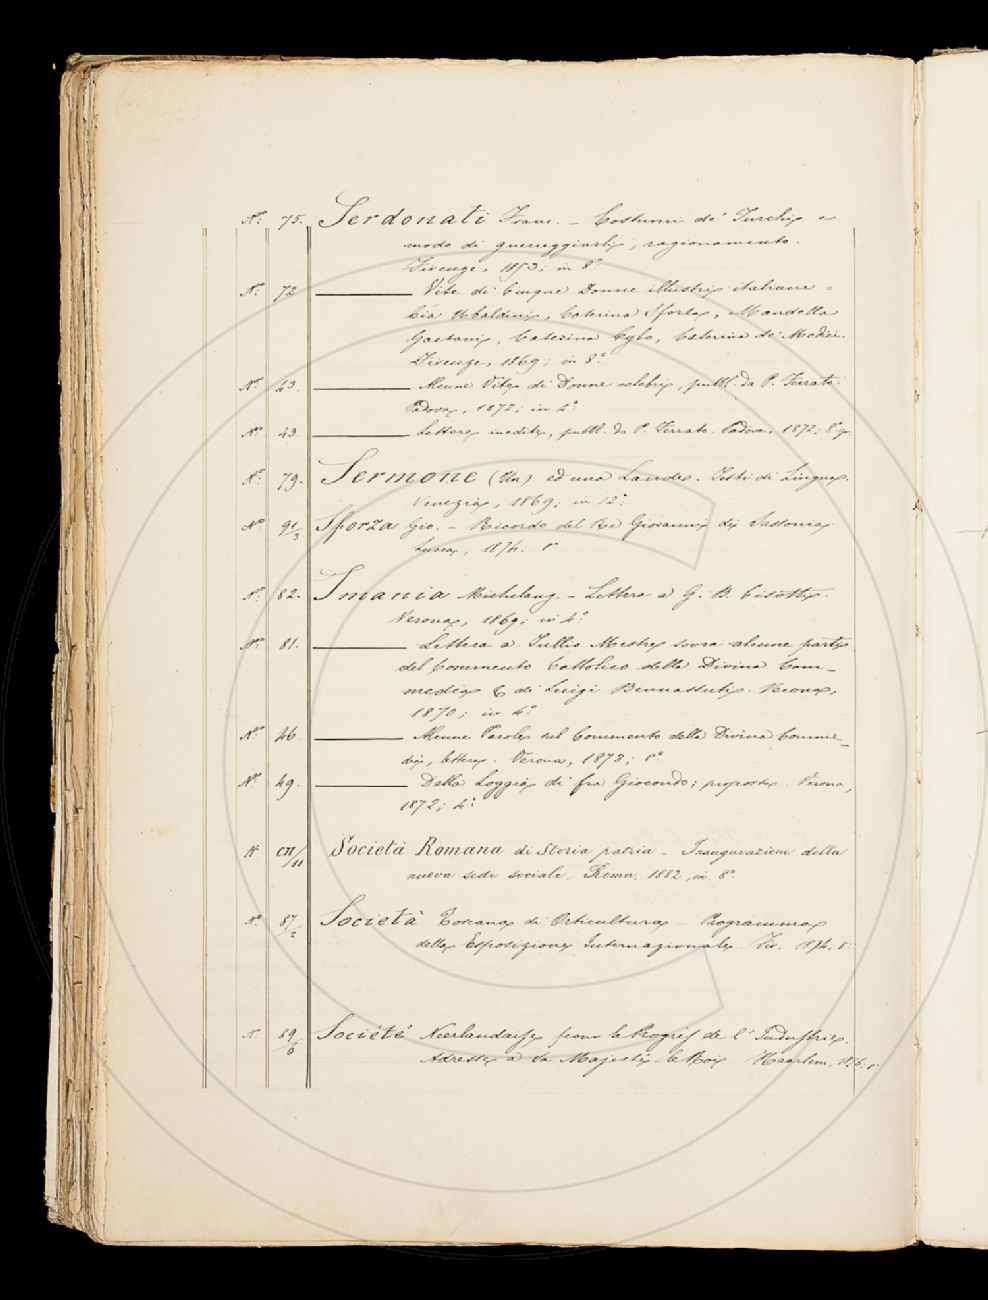 N.º 75. Serdonati Franc. – Costumi de' Turchi e
modo di guerreggiarli; ragionamento.
Firenze, 1853; in 8.º
N.º 72 ——— Vite di Cinque Donne illustri italiane =
Cia Ubaldini, Caterina Sforza, Mandella
Gaetani, Caterina Cybo, Caterina de' Medici.
Firenze, 1869; in 8.º
N.º 43. ——— Alcune Vite di Donne celebri, pubbl. da P. Ferrato.
Padova, 1872; in 4.º
N.º 43. ——— Lettere inedite, pubbl. da P. Ferrato. Padova, 1872; 8.º
N.º 79. Sermone (Un) ed una Laude. Testi di Lingua.
Venezia, 1869; in 12.º
N.º 91/3 Sforza Gio. – Ricordo del Re Giovanni di Sassonia
Lucca, 1874. 8.º
N.º 82. Smania Michelang. – Lettera a G. B.
Verona, 1869; in 4.º
N.º 81. ——— Lettera a Tullio Mestre sovra alcune parti
del Commento Cattolico della Divina Com-
media & di Luigi Bennassuti. Verona,
1870; in 4.º
N.º 46. ——— Alcune Parole sul Commento della Divina Comme-
dia, lettera. Verona, 1873; 8.º
N.º 49. ——— Della Loggia di fra Giocondo; proposta. Verona,
1872; 4.º
N. CII/11 Società Romana di Storia patria – Inaugurazione della
nuova sede sociale. Roma, 1882, in 8.º
N.º 87/2 Società Toscana di Orticultura – Programma
della Esposizione Internazionale. Fir. 1874. 8.º
N. 89/6 Société Neerlandaise pour le Progrès de l'Industrie.
Adresse à sa Majesté le Roi. Haarlem, 8.º